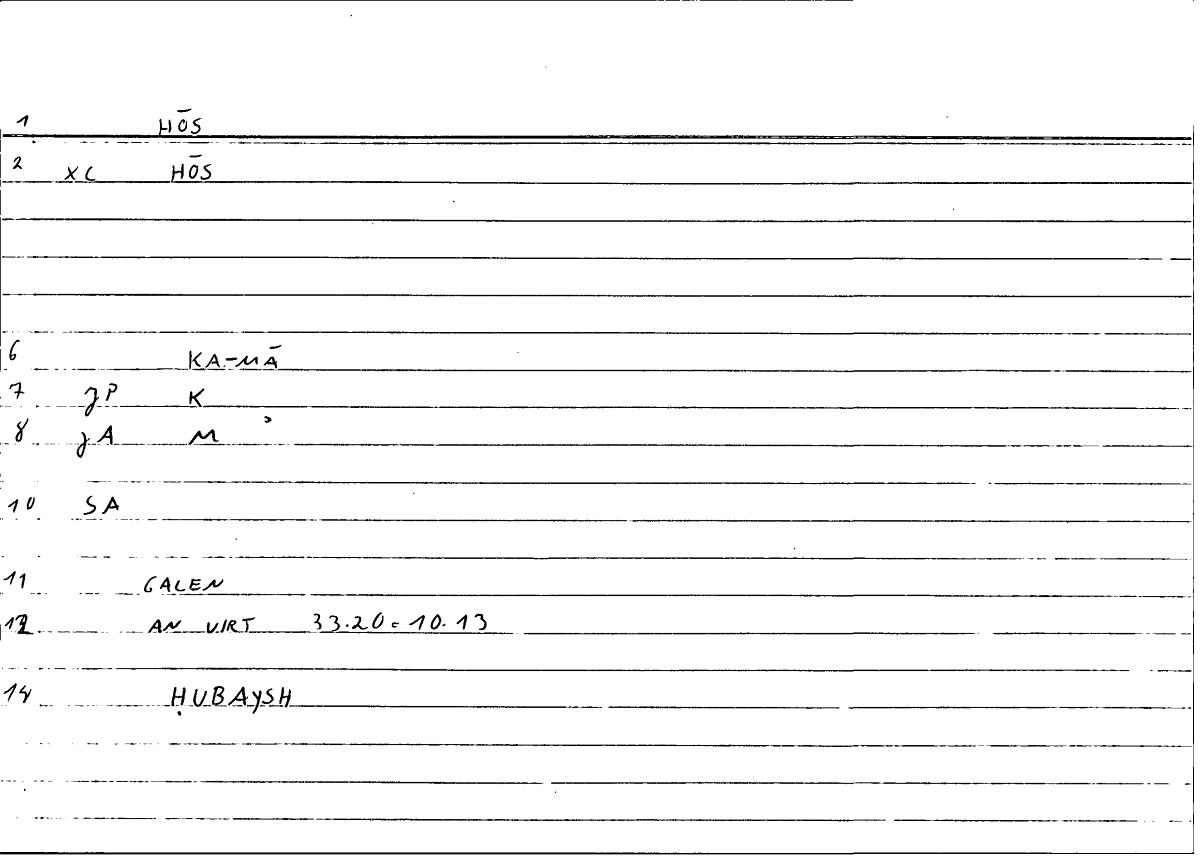 1 HŌS
2 XC HŌS
6 KA-MĀ
7 JP K
8 JA M ʾ
10 SA
11 GALEN
12 AN VIRT 33.20 = 10.13
14 ḤUBAYSH